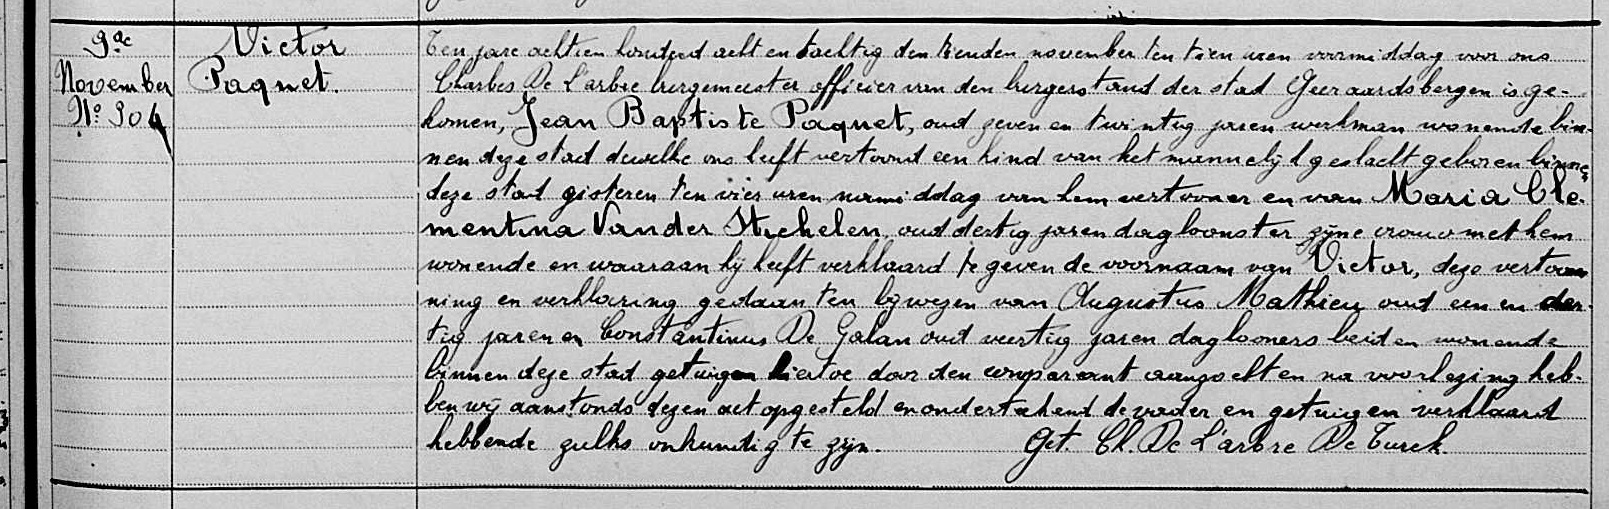 9de
November
No 304
Victor
Paquet.
Ten jare achtien honderd acht en tachtig den tienden november ten tien uren voormiddag voor ons
Charles De L'arbre burgemeester officier van den burgerstand der stad Geeraardsbergen is ge-
komen, Jean Baptiste Paquet, oud zeven en twintig jaren werkman wonende bin-
nen deze stad dewelke ons heeft vertoond een kind van het mannelijk geslacht geboren binnen
deze stad gisteren ten vier uren namiddag van hem vertooner en van Maria Cle-
mentina Vander Stichelen, oud dertig jaren dagloonster zijne vrouw met hem
wonende en waaraan hij heeft verklaard te geven de voornaam van Victor, deze vertoon
ning en verklaring gedaan ten bijwezen van Augustus Mathieu oud een en der-
tig jaren en Constantinus De Galan oud veertig jaren daglooners beiden wonende
binnen deze stad getuigen hiertoe door den comparant aangezocht en na voorlezing heb-
ben wij aanstonds dezen act opgesteld en ondertekend de vader en getuigen verklaard
hebbende zulks onkundig te zijn. Get. Ch. De L'arbre De Turck.